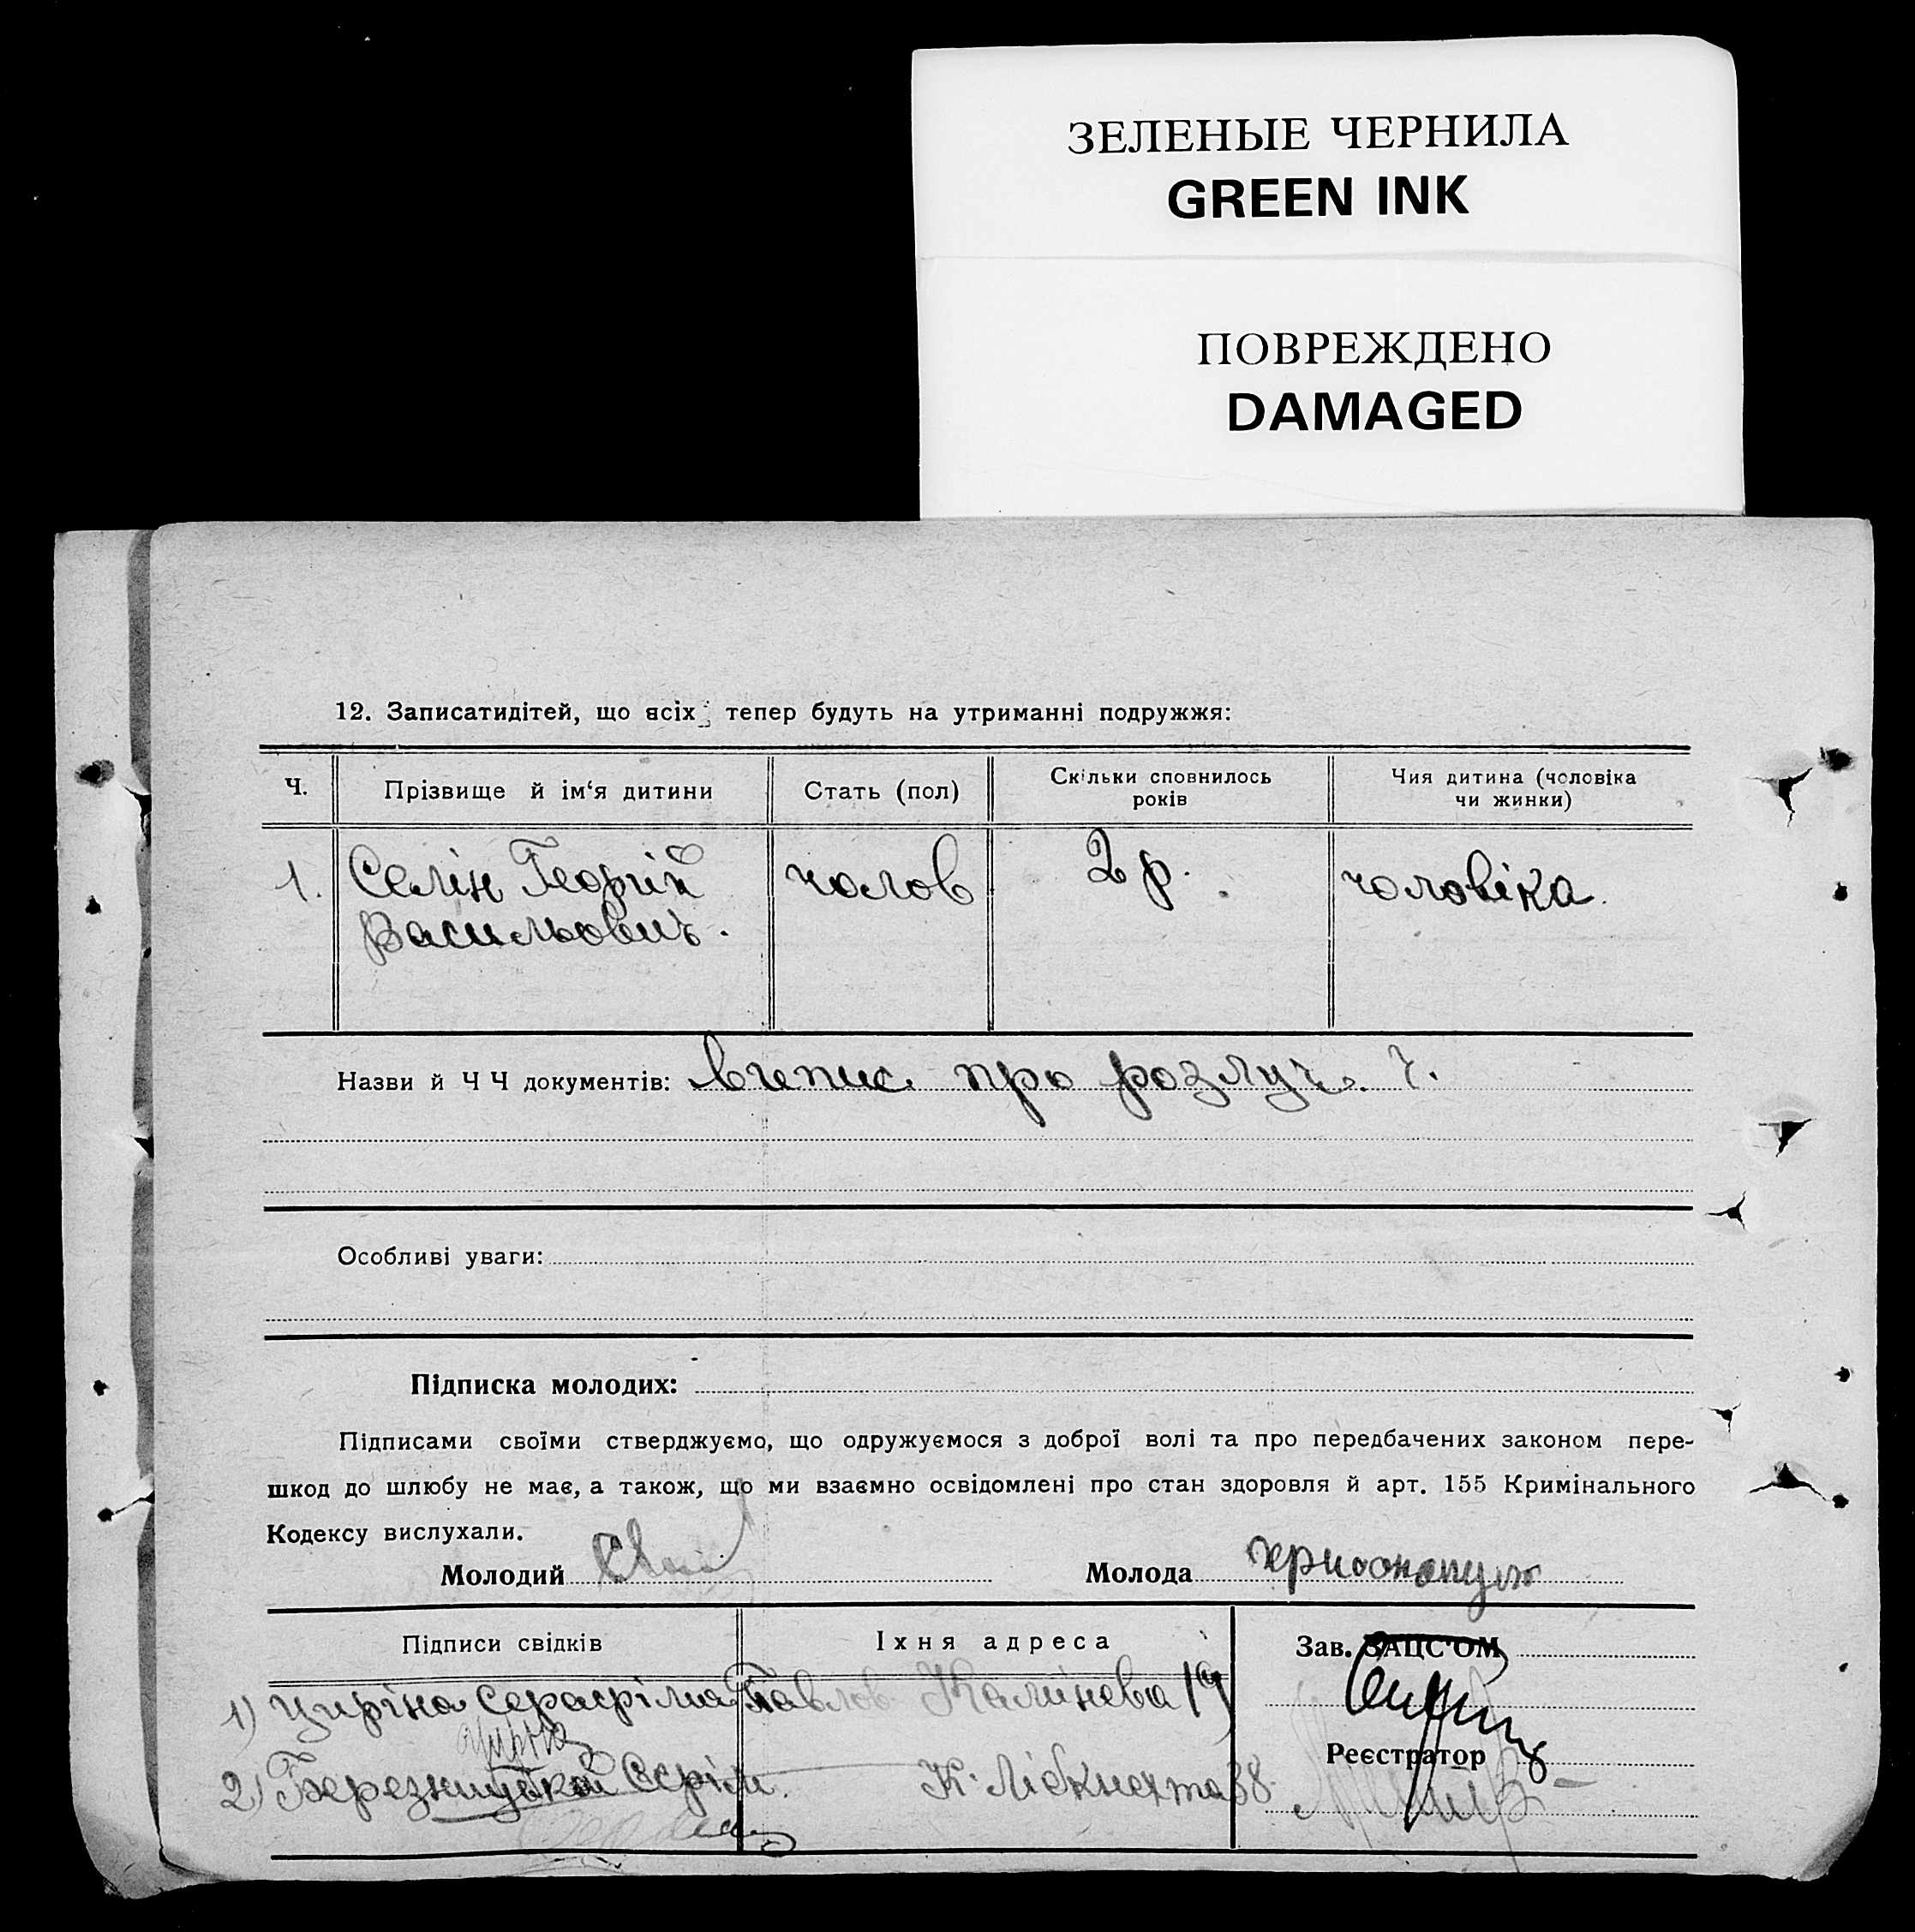 ЗЕЛЕНЫЕ ЧЕРНИЛА
GREEN INK
ПОВРЕЖДЕНО
DAMAGED
12. Записатидітей, що всіх тепер будуть на утриманні подружжя:
Ч. Прізвище й ім‘я дитини Стать (пол) Скільки сповнилось років Чия дитина (чоловіка чи жинки)
1. Селін Георгій чолов 2 р. чоловіка.
Васильович.
Назви й Ч Ч документів: випис про розлуч. Ч.
Особливі уваги:
Підписка молодих:
Підписами своїми стверджуємо, що одружуємося з доброї волі та про передбачених законом пере-
шкод до шлюбу не має, а також, що ми взаємно освідомлені про стан здоровля й арт. 155 Кримінального
Кодексу вислухали.
Молодий Молода
Підписи свідків Їхня адреса Зав. ЗАЦС‘ОМ
1) Циріна Серафіма Павлов Калинева 19
Реєстратор
2) К. Лібкнехта 38